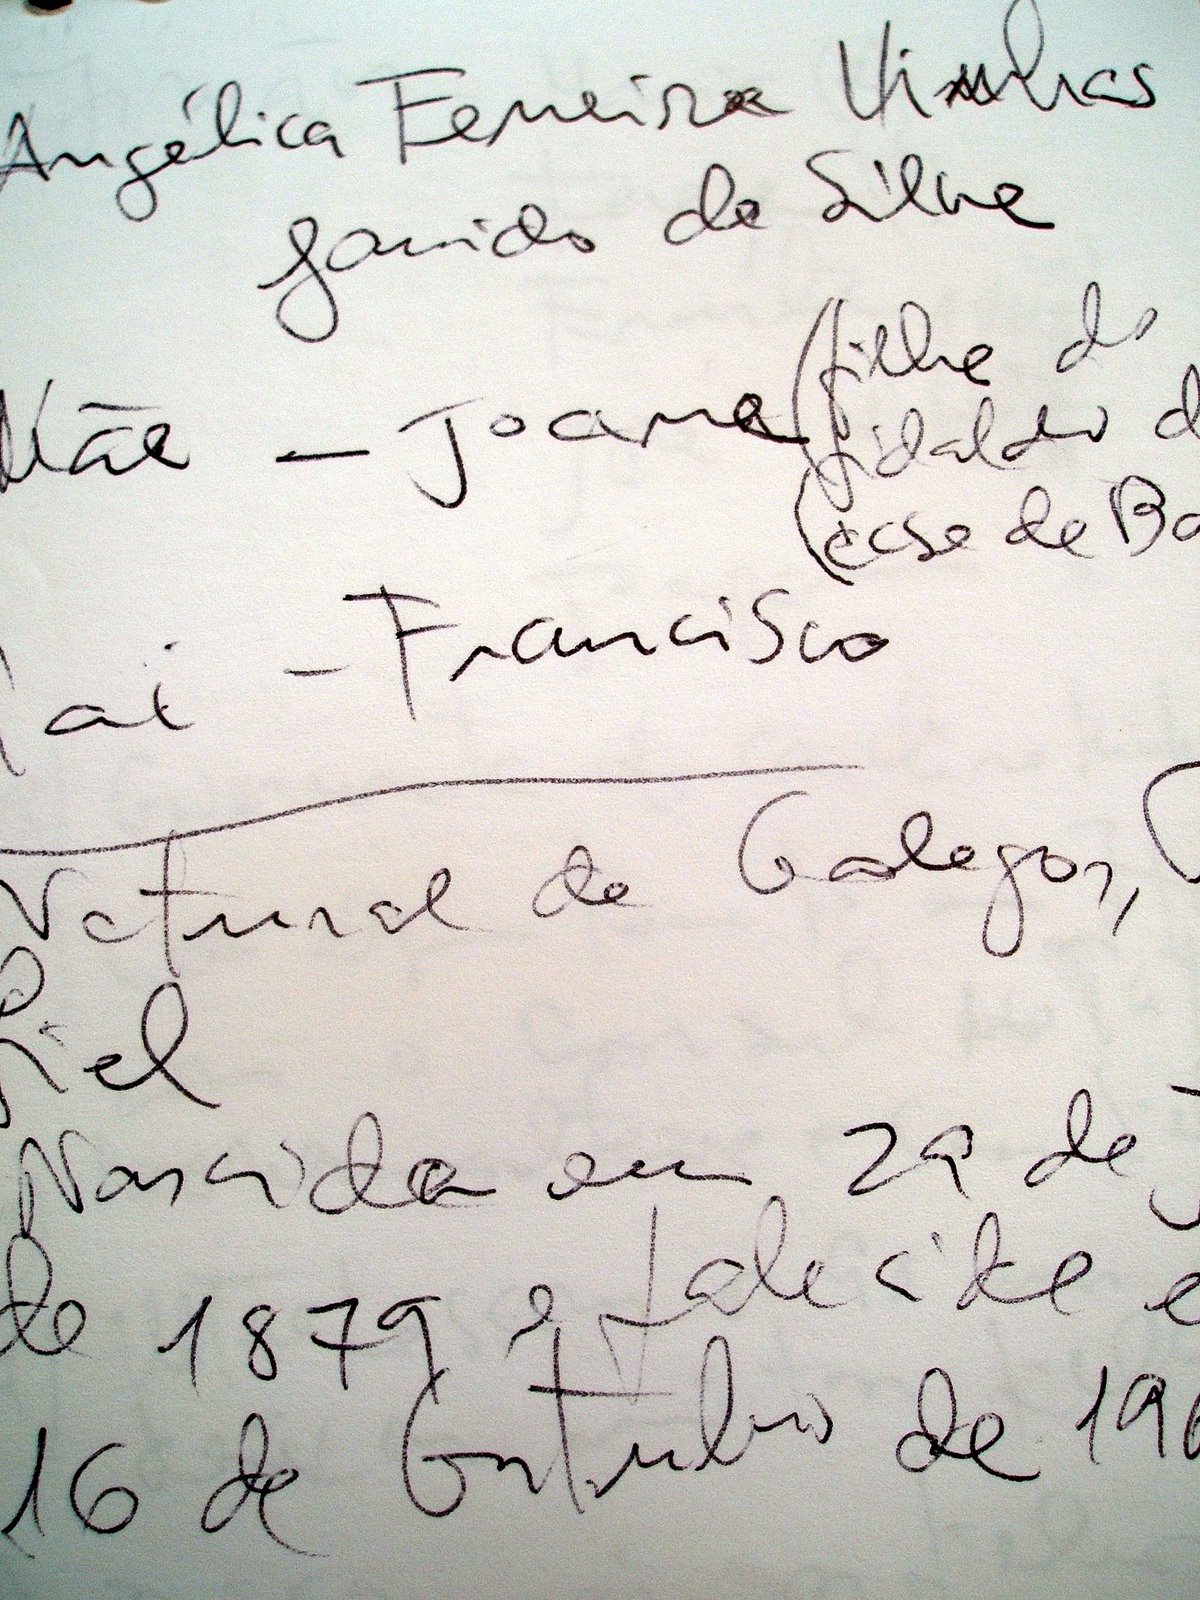 Angélica Ferreira Vinhas
Garrido da Silva
Mãe - Joana (filha do
fidalgo d
casa de Ba
Pai - Francisco
Natural de Galegos,
fiel
Nascida em 29 de J
de 1879 e falecida e
16 de Outubro de 196